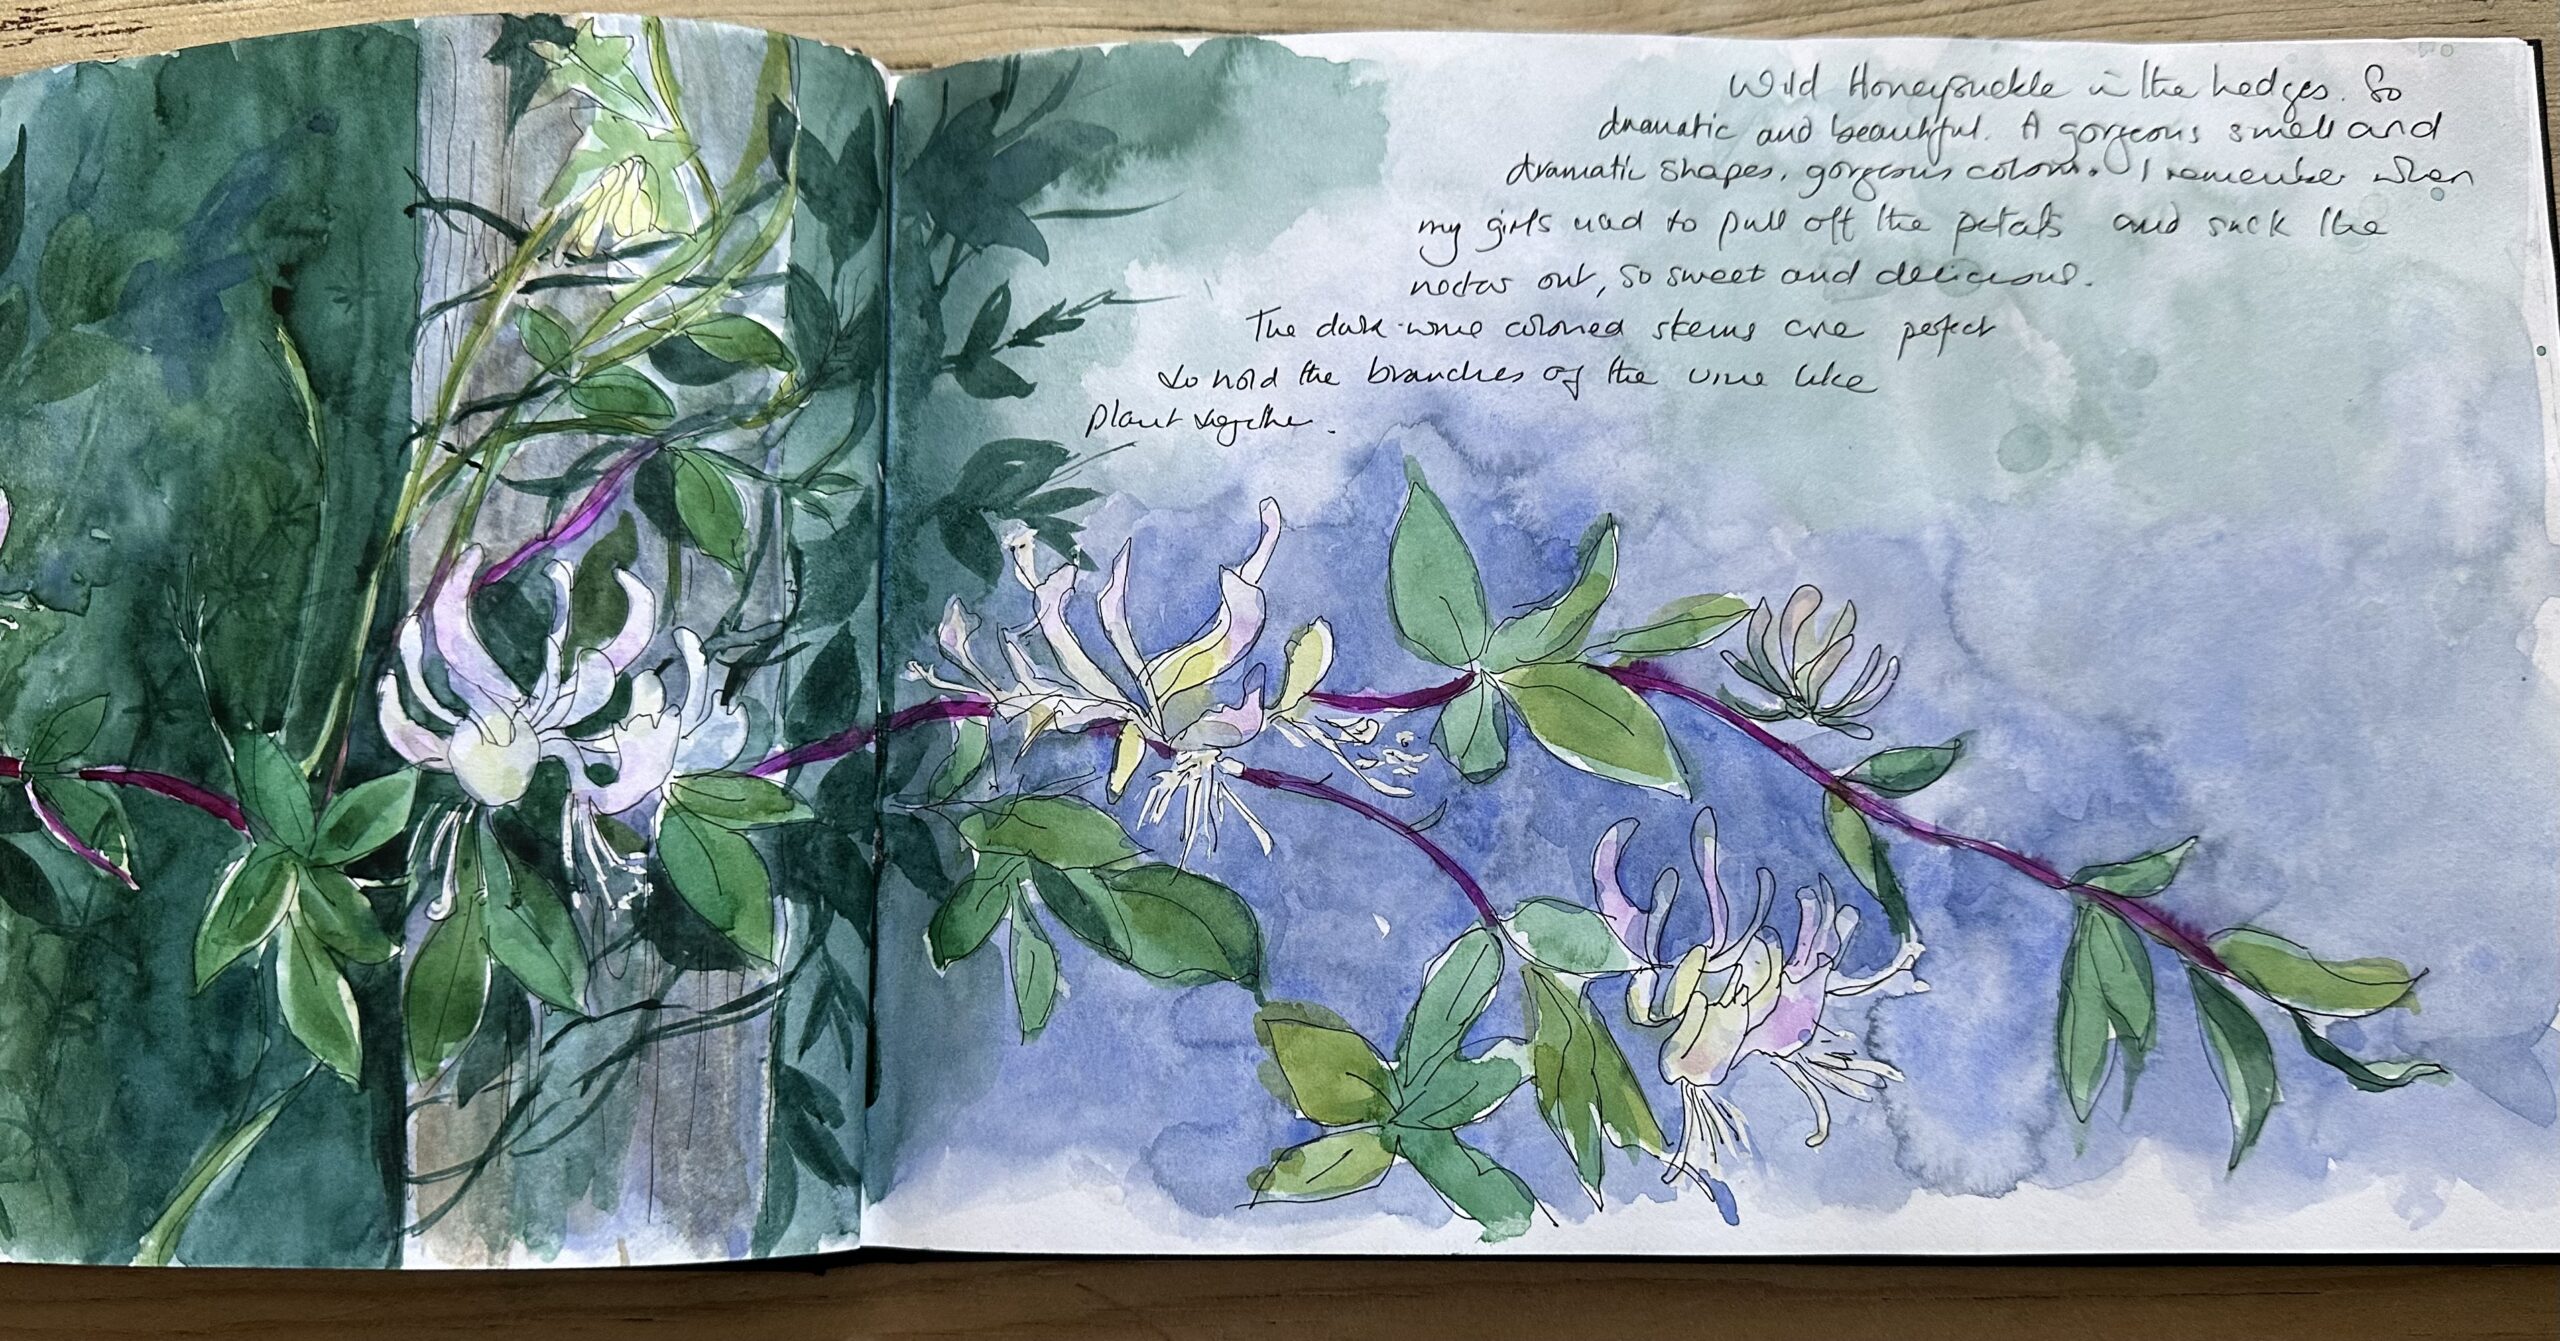 Wild Honeysuckle in the hedges. So
dramatic and beautiful. A gorgeous smell and
dramatic shapes, gorgeous colours. I remember when
my girls used to pull off the petals and suck the
nectar out, so sweet and delicious.
The dark wine coloured stems are perfect
to hold the branches of the vine like
plant together.